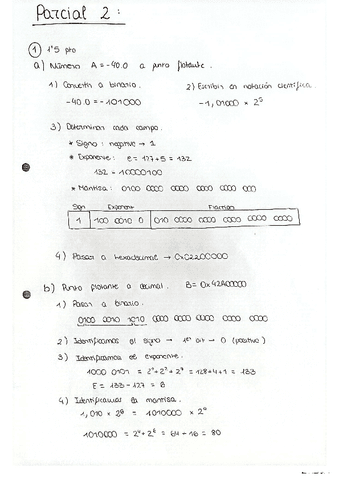 Parcial 2:
① 1'5 pto
a) Número A = -40.0 a punto flotante.
1) Convertir a binario. 2) Escribir en notación científica.
-40.0 = -101000 -1,01000 × 2⁵
3) Determinar cada campo.
* Signo: negativo → 1
* Exponente: e = 127+5 = 132
132 = 10000100
* Mantisa: 0100 0000 0000 0000 0000 000
Sign Exponent Fraction
1 100 0010 0 010 0000 0000 0000 0000 0000
4) Pasar a hexadecimal → 0xC2200000
b) Punto flotante a decimal. B = 0x42A00000
1) Pasar a binario.
0100 0010 1010 0000 0000 0000 0000 0000
2) Identificamos el signo → 1er bit → 0 (positivo)
3) Identificamos el exponente.
1000 0101 = 2⁰+2²+2⁷ = 128+4+1 = 133
E = 133 - 127 = 6
4) Identificamos la mantisa.
1,010 × 2⁶ = 1010000 × 2⁰
1010000 = 2⁴+2⁶ = 64 + 16 = 80